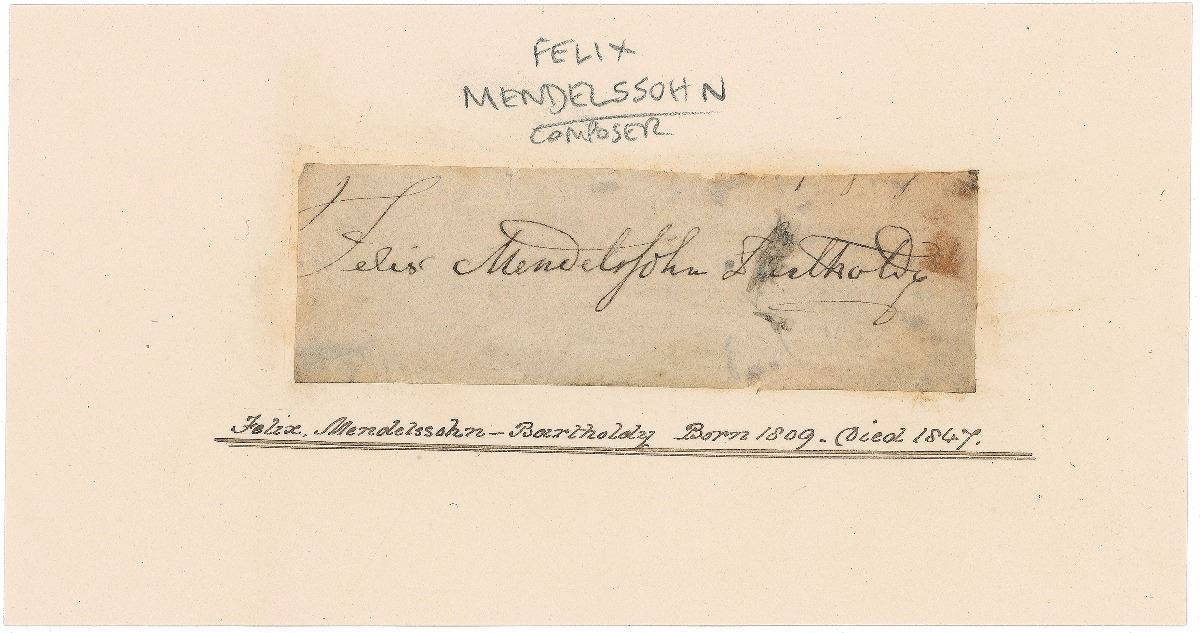 FELIX
MENDELSSOHN
COMPOSER
Felix Mendelssohn Bartholdy
Felix. Mendelssohn - Bartholdy Born 1809. Died 1847.